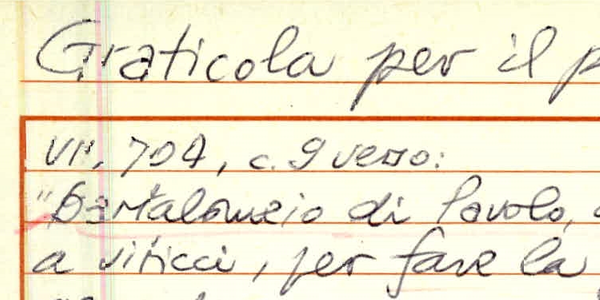 Graticola per il p
VII, 704, c. 9 verso:
"Bartalomeio di Pavolo,
a viticci, per fare la